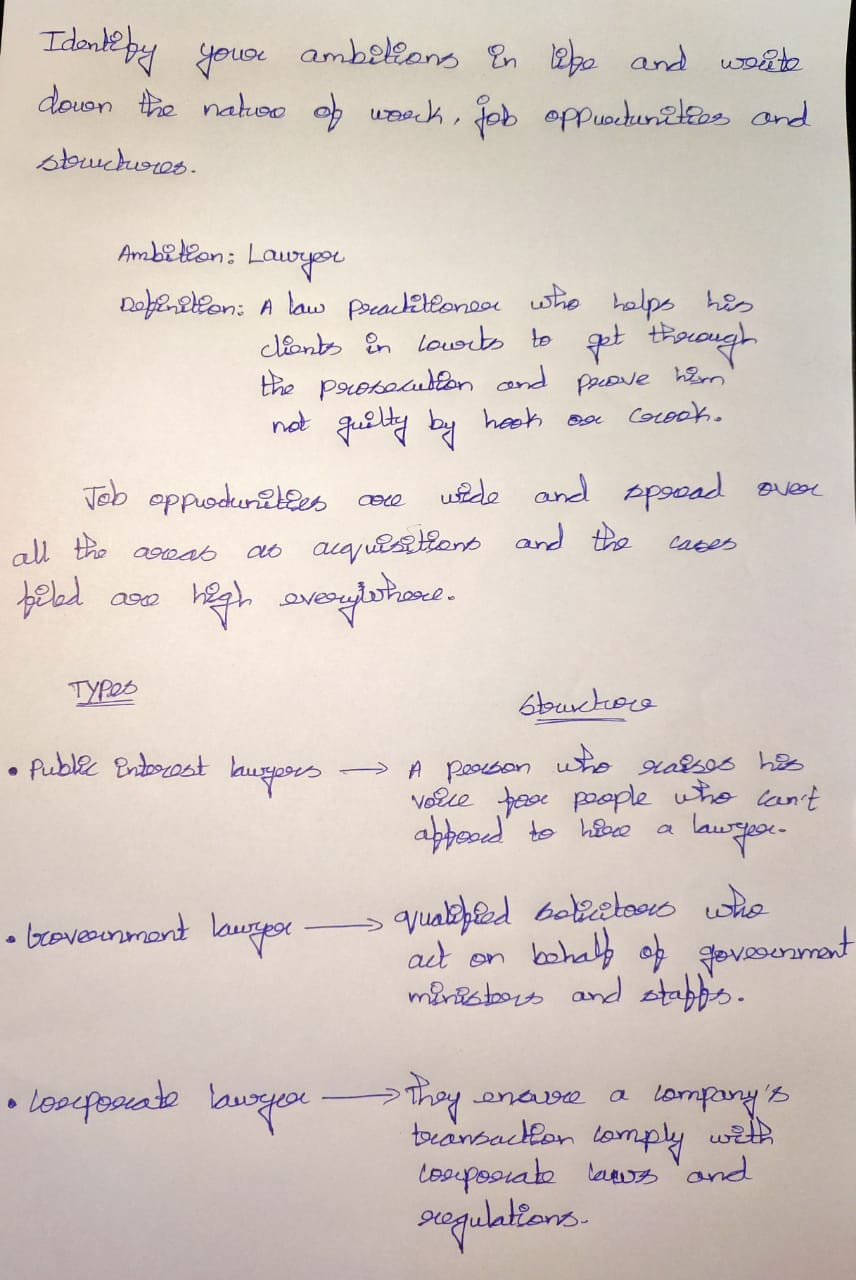 Identify your ambitions in life and write
down the nature of work, job oppurtunities and
structures.
Ambition: Lawyer
Definition: A law practitioner who helps his
clients in courts to get through
the prosecution and prove him
not guilty by hook or crook.
Job oppurtunities are wide and spread over
all the areas as acquisitions and the cases
filed are high everywhere.
TYPes
Structure
• Public interest lawyers → A person who raises his
voice for people who can't
afford to hire a lawyer.
• Government lawyer → qualified solicitors who
act on behalf of government
ministers and staffs.
• Corporate lawyer → They ensure a company's
transaction comply with
corporate laws and
regulations.